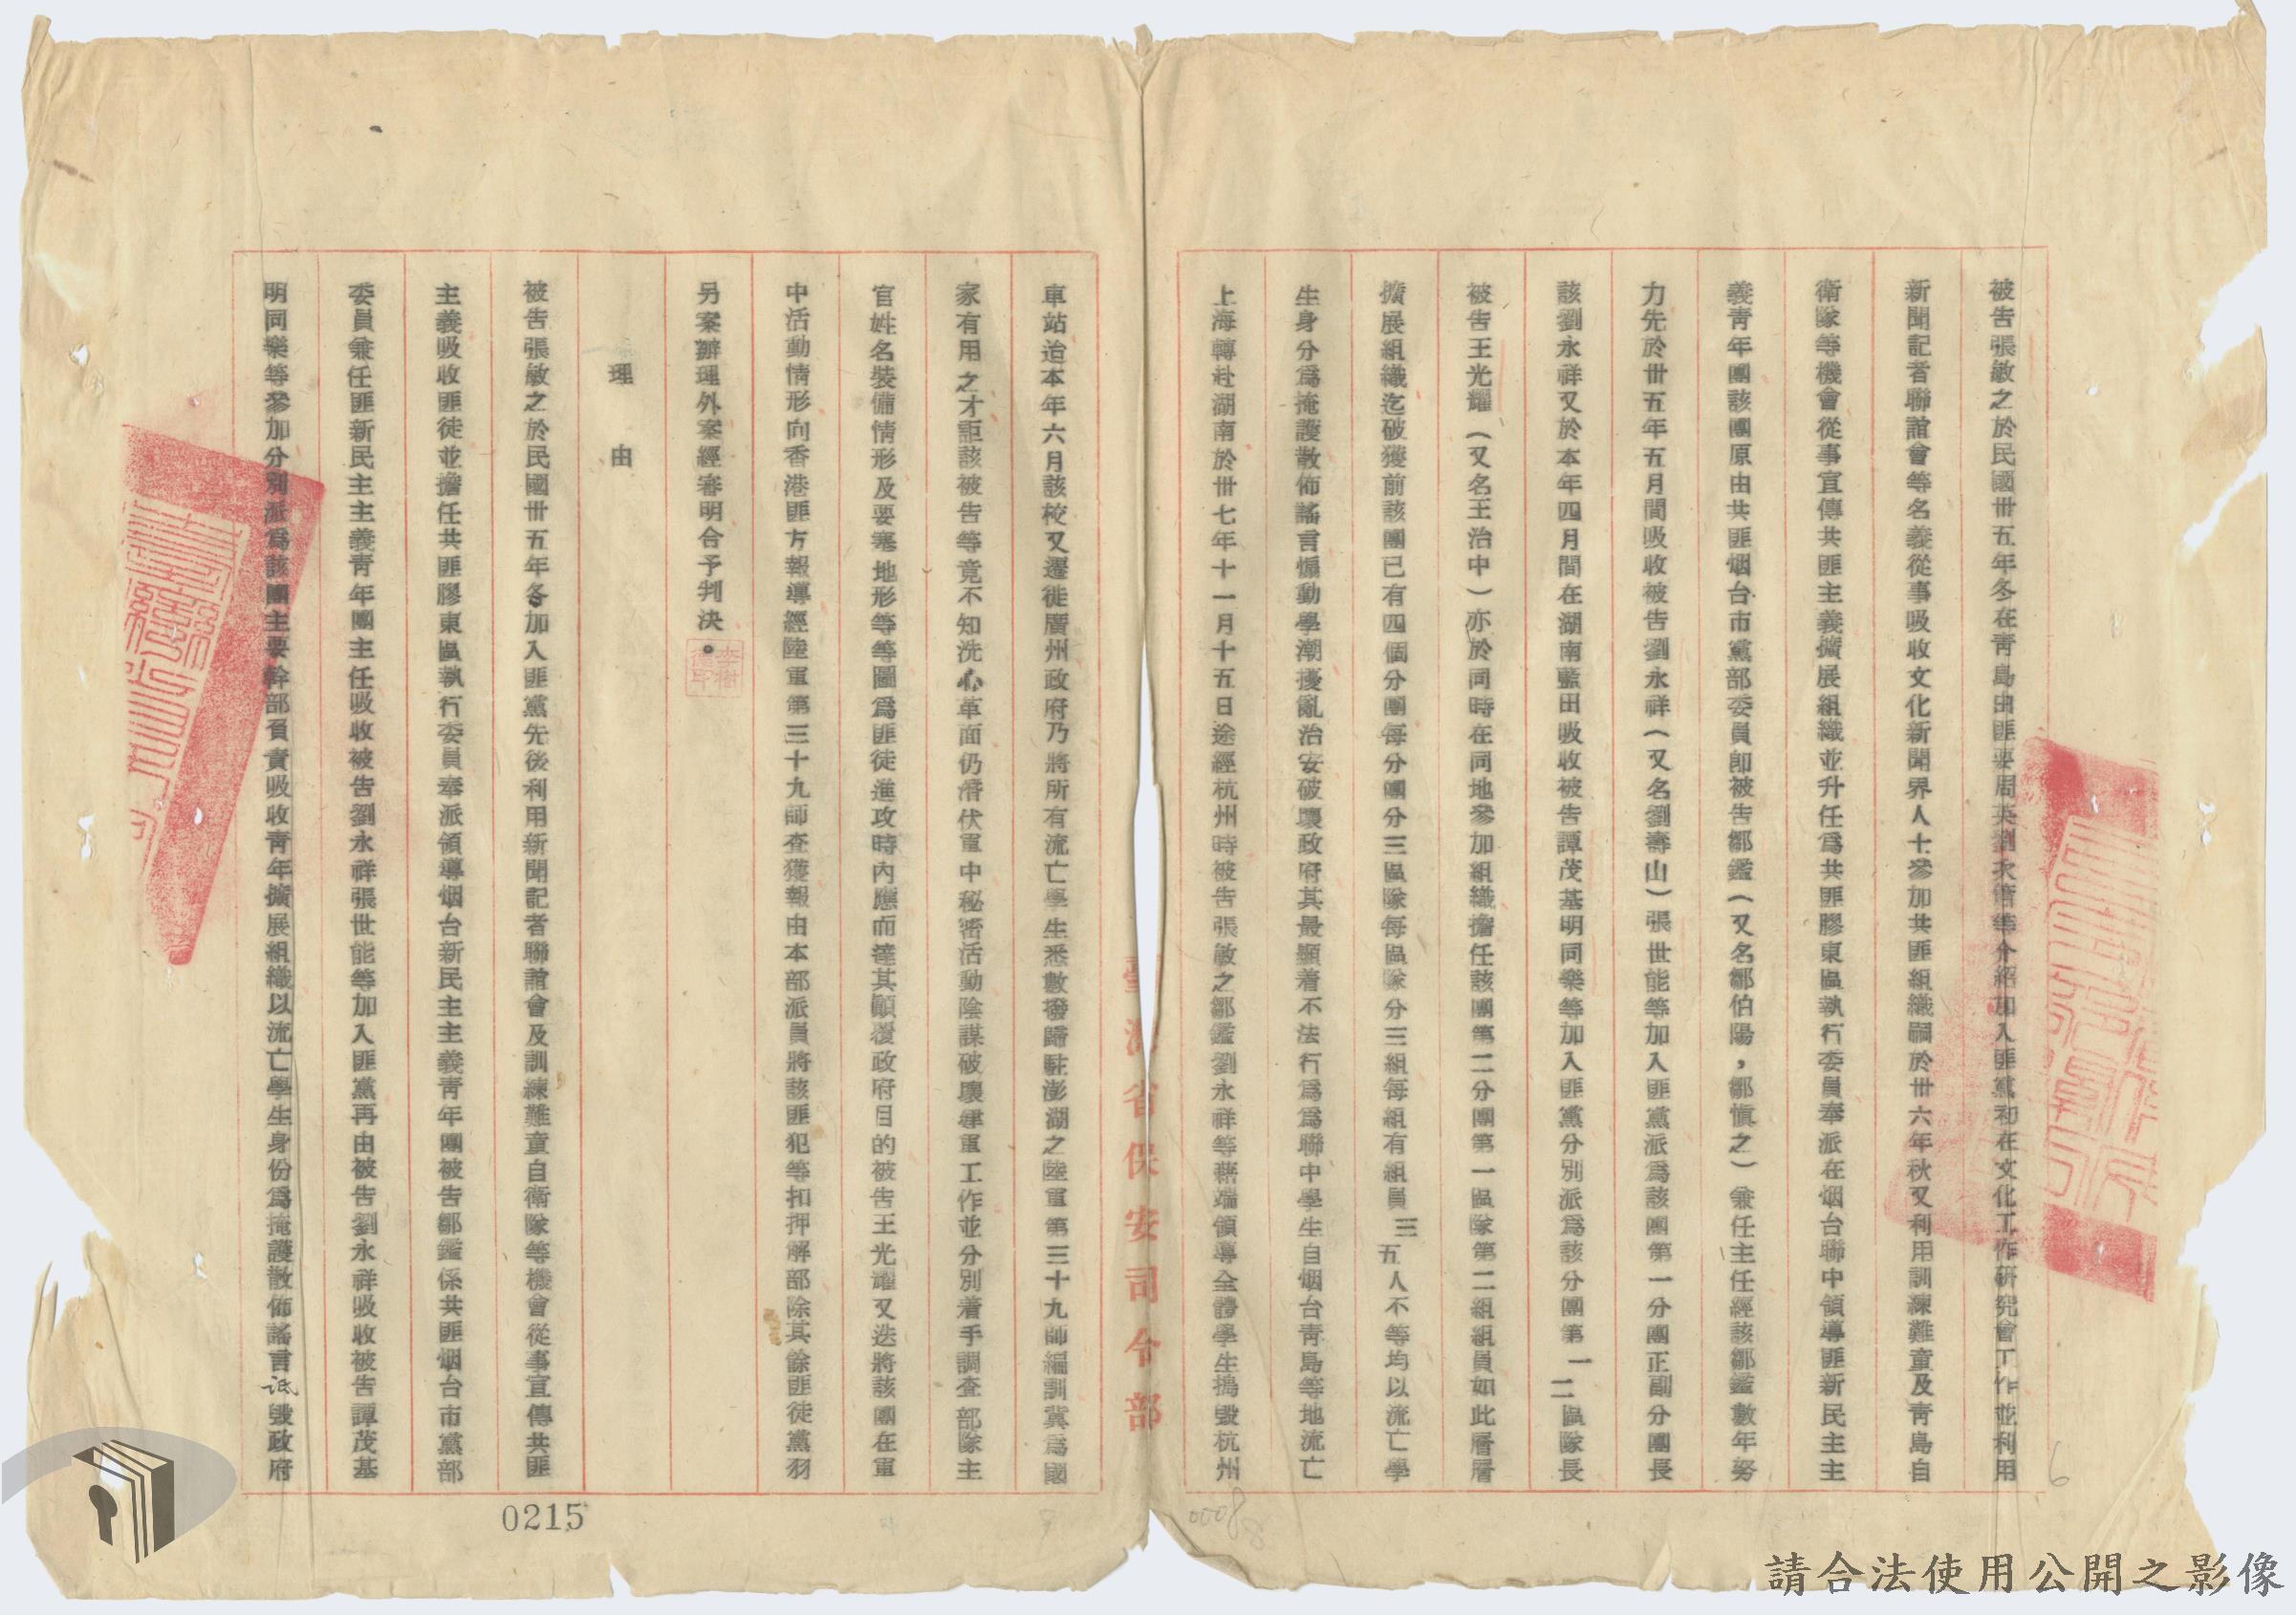 被告張敏之於民國卅五年冬在靑島由匪要周英劉永衞等介紹加入匪黨初在文化工作研究會工作並利用
新聞記者聯誼會等名義從事吸收文化新聞界人士參加共匪組織嗣於卅六年秋又利用訓練難童及靑島自
衛隊等機會從事宣傳共匪主義擴展組織並升任爲共匪膠東區執行委員奉派在烟台聯中領導匪新民主主
義靑年團該團原由共匪烟台市黨部委員卽被告鄒鑑（又名鄒伯陽，鄒愼之）兼任主任經該鄒鑑數年努
力先於卅五年五月間吸收被告劉永祥（又名劉壽山）張世能等加入匪黨派爲該團第一分團正副分團長
該劉永祥又於本年四月間在湖南藍田吸收被告譚茂基明同樂等加入匪黨分別派爲該分團第一二區隊長
被告王光耀（又名王治中）亦於同時在同地參加組織擔任該團第二分團第一區隊第二組組員如此層層
擴展組織迄破獲前該團已有四個分團每分團分三區隊每區隊分三組每組有組員三五人不等均以流亡學
生身分爲掩護散佈謠言煽動學潮擾亂治安破壞政府其最顯着不法行爲爲聯中學生自烟台靑島等地流亡
上海轉赴湖南於卅七年十一月十五日途經杭州時被告張敏之鄒鑑劉永祥等藉端領導全體學生搗毀杭州
臺灣省保安司令部
車站迨本年六月該校又遷徙廣州政府乃將所有流亡學生悉數撥歸駐澎湖之陸軍第三十九師編訓冀爲國
家有用之才詎該被告等竟不知洗心革面仍潛伏軍中秘密活動陰謀破壞建軍工作並分別着手調查部隊主
官姓名裝備情形及要塞地形等等圖爲匪徒進攻時內應而達其顚覆政府目的被告王光耀又迭將該團在軍
中活動情形向香港匪方報導經陸軍第三十九師查獲報由本部派員將該匪犯等扣押解部除其餘匪徒黨羽
另案辦理外案經審明合予判決。
理　由
被告張敏之於民國卅五年冬加入匪黨先後利用新聞記者聯誼會及訓練難童自衛隊等機會從事宣傳共匪
主義吸收匪徒並擔任共匪膠東區執行委員奉派領導烟台新民主主義靑年團被告鄒鑑係共匪烟台市黨部
委員兼任匪新民主主義靑年團主任吸收被告劉永祥張世能等加入匪黨再由被告劉永祥吸收被告譚茂基
明同樂等參加分別派爲該團主要幹部負責吸收靑年擴展組織以流亡學生身份爲掩護散佈謠言詆毀政府
0215
0008
6
請合法使用公開之影像